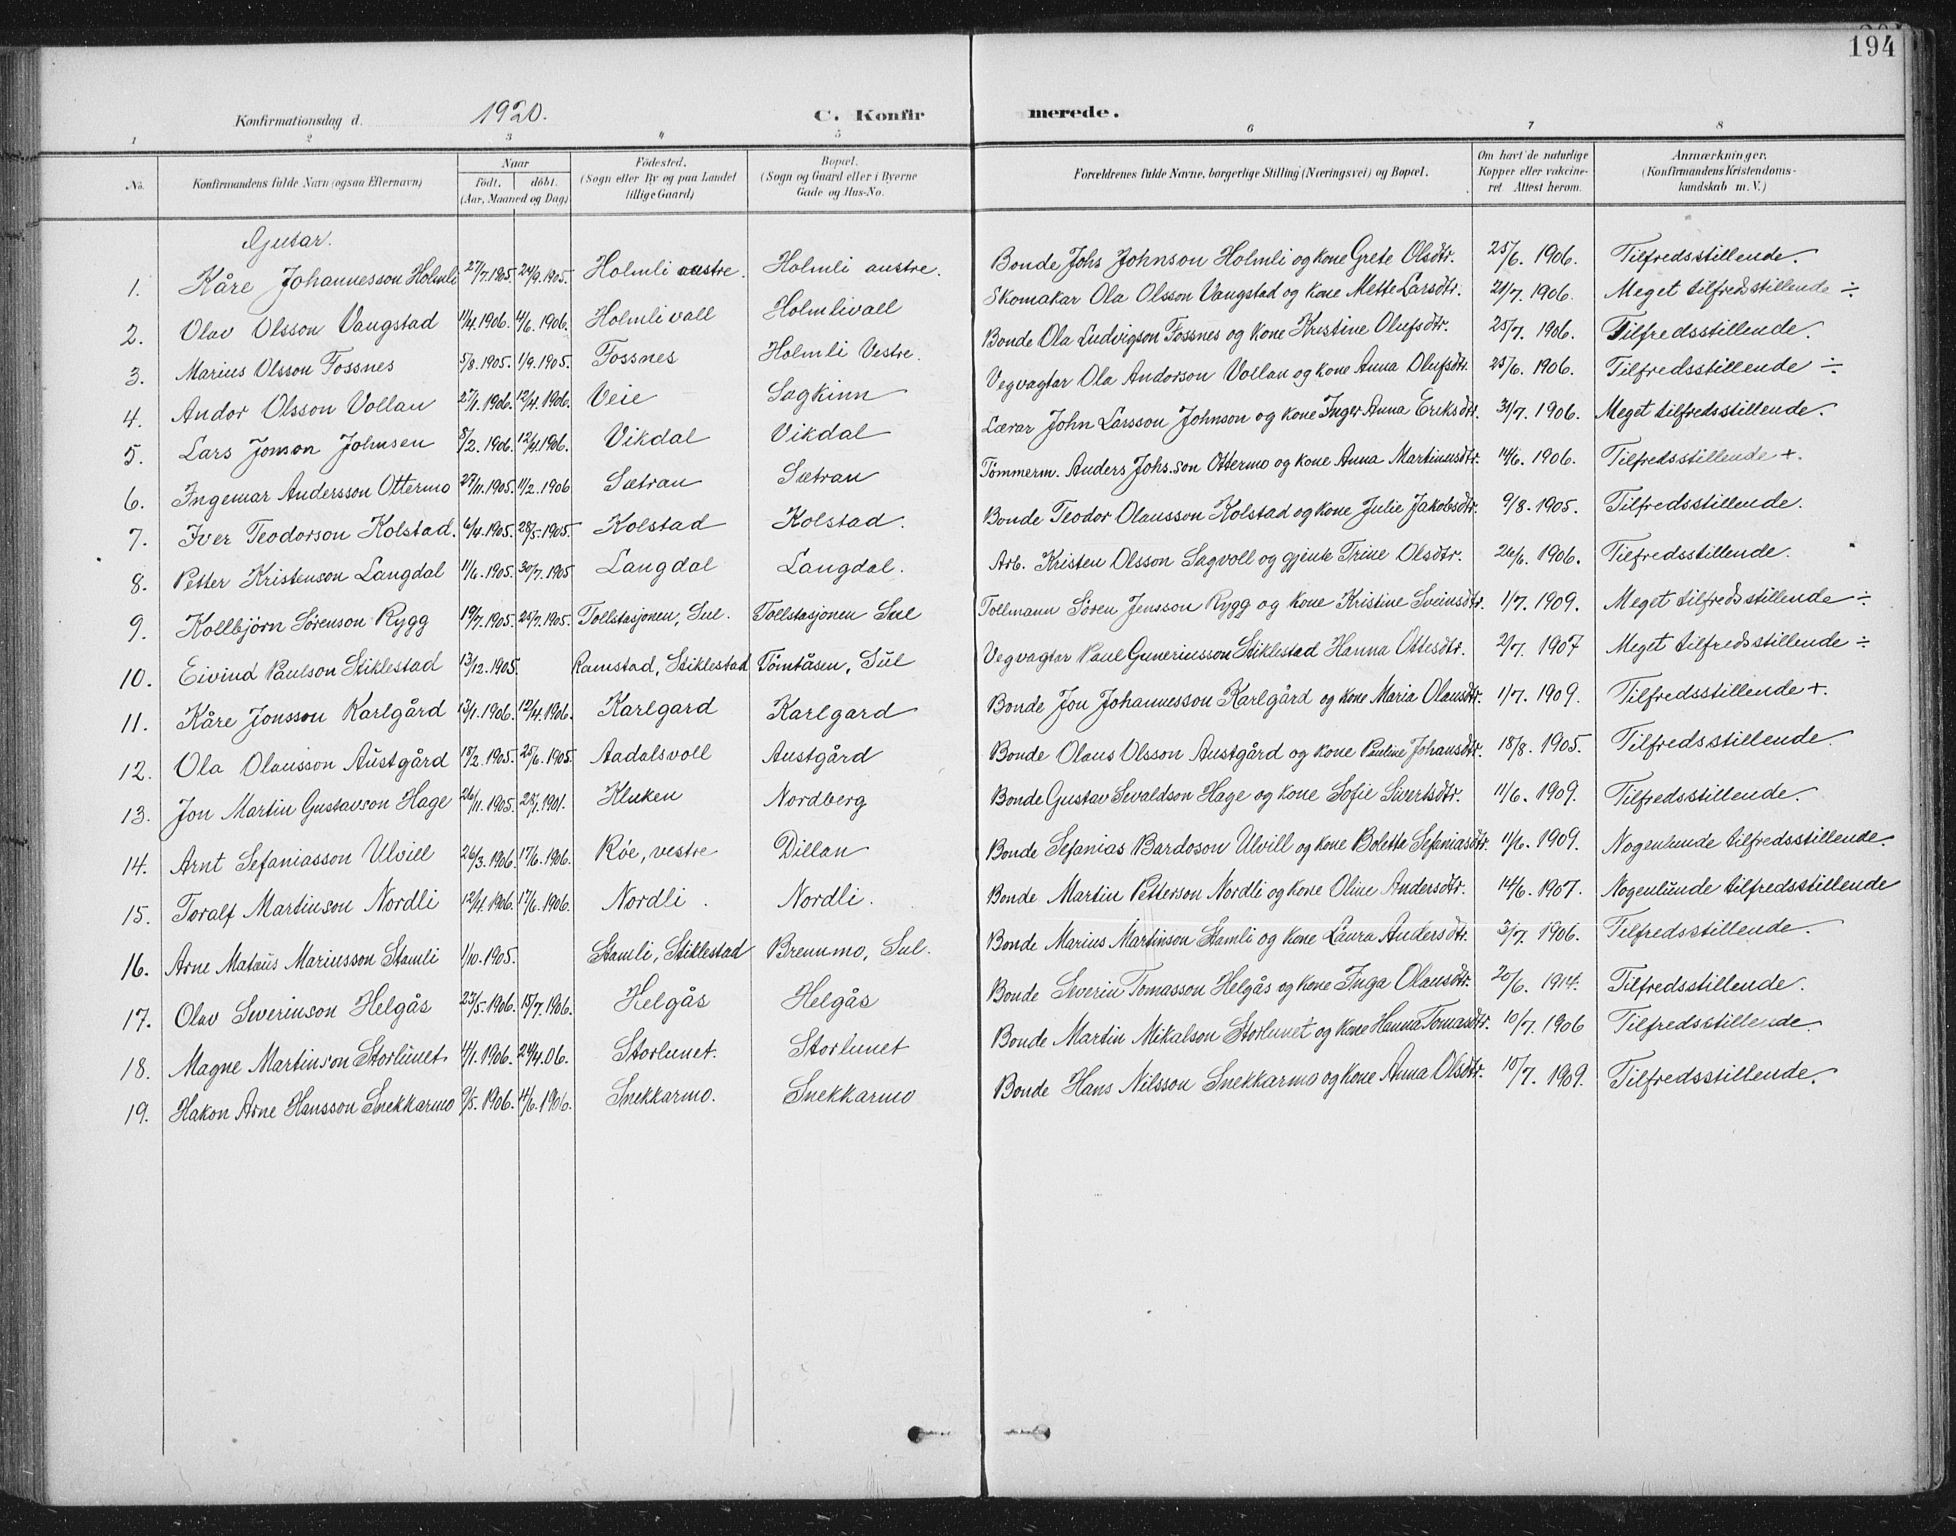 194
Konfirmationsdag d. 1920. C. Konfirmerede.
1 2 3 4 5 6 7 8
No. Konfirmandens fulde Navn (ogsaa Efternavn) Naar født. døbt. (Aar, Maaned og Dag) Fødested. (Sogn eller By og paa Landet tillige Gaard) Bopæl. (Sogn og Gaard eller i Byerne Gade og Hus-No. Forældrenes fulde Navne, borgerlige Stilling (Næringsvei) og Bopæl. Om havt de naturlige Kopper eller vakcineret Attest herom. Anmærkninger. (Konfirmandens Kristendomskundskab m. V.)
Gutar.
1. Kåre Johannesson Holmli 27/7.1905. 24/9.1905. Holmli austre. Holmli austre. Bonde Johs Johnson Holmli og kone Grete Olsdtr. 25/6. 1906. Tilfredsstillende.
2. Olav Olsson Vangstad 11/4.1906. 4/6.1906. Holmlivall Holmlivall Skomakar Ola Olsson Vangstad og kone Mette Larsdtr. 21/7. 1906. Meget tilfredsstillende ÷
3. Marius Olsson Fossnes 5/8.1905. 1/9.1905. Fossnes Holmli Vestre. Bonde Ola Ludvigson Fossnes og kone Kristine Olufsdtr. 25/7. 1906. Tilfredsstillende.
4. Andor Olsson Vollan 27/1.1906. 12/4.1906. Veie Sagkinn Vegvagtar Ola Andorson Vollan og kone Anna Olufsdtr. 25/6. 1906. Tilfredsstillende ÷
5. Lars Jonson Johnsen 8/2.1906. 12/4.1906. Vikdal Vikdal Lærar John Larsson Johnson og kone Inger Anna Eriksdtr. 31/7. 1906. Meget tilfredsstillende.
6. Ingemar Andersson Ottermo 27/11.1905. 11/2.1906 Sætran Sætran Tömmerm. Anders Johs.son Ottermo og kone Anna Martinusdtr. 14/6. 1906. Tilfredsstillende +.
7. Iver Teodorson Kolstad. 6/4.1905. 28/5.1905. Kolstad Kolstad. Bonde Teodor Olausson Kolstad og kone Julie Jakobsdtr. 9/8. 1905. Tilfredsstillende.
8. Petter Kristenson Langdal 11/6.1905. 30/7.1905 Langdal Langdal. Arb. Kristen Olsson Sagvoll og gjente Trine Olsdtr. 26/6. 1906. Tilfredsstillende.
9. Kollbjörn Sörenson Rygg 19/7.1905. 25/7.1905. Tollstasjonen, Sul. Tollstasjonen Sul Tollmann Sören Jensson Rygg og kone Kristine Sveinsdtr. 1/7. 1909. Meget tilfredsstillende ÷
10. Eivind Paulson Stiklestad 13/12.1905. Ramstad, Stiklestad Tömtåsen, Sul Vegvagtar Paul Guneriusson Stiklestad Hanna Ottesdtr. 2/7. 1907 Meget tilfredsstillende ÷
11. Kåre Jonsson Karlgård 13/1.1906. 12/4.1906. Karlgard Karlgard Bonde Jon Johannesson Karlgård og kone Maria Olausdtr. 1/7. 1909. Tilfredsstillende +.
12. Ola Olausson Austgård 18/2.1905. 25/6.1905. Aadalsvoll Austgård Bonde Olaus Olsson Austgård og kone Pauline Johansdtr. 18/8. 1905. Tilfredsstillende.
13. Jon Martin Gustavson Hage 26/11.1905. 28/1.1901. Kluken Nordberg Bonde Gustav Sevaldson Hage og kone Sofie Sivertsdtr. 11/6. 1909. Tilfredsstillende.
14. Arnt Sefaniasson Ulvill 26/3.1906. 17/6.1906. Röe, vestre Dillan Bonde Sefanias Bardoson Ulvill og kone Bolette Sefaniasdtr. 11/6. 1909. Nogenlunde tilfredsstillende.
15. Toralf Martinson Nordli 12/4.1906. 17/6.1906. Nordli. Nordli. Bonde Martin Petterson Nordli og kone Oline Andersdtr. 14/6. 1907. Nogenlunde tilfredsstillende
16. Arne Mataus Mariusson Stamli 1/10.1905. Stamli, Stiklestad Brennmo, Sul. Bonde Marius Martinson Stamli og kone Laura Andersdtr. 3/7. 1906. Tilfredsstillende.
17. Olav Severinson Helgås 23/5.1906. 15/7.1906. Helgås Helgås Bonde Severin Tomasson Helgås og kone Inga Olausdtr. 20/6. 1914. Tilfredsstillende.
18. Magne Martinson Storlunet 4/1.1906. 24/4.06. Storlunet. Storlunet Bonde Martin Mikalson Storlunet og kone Hanna Tomasdtr. 10/7. 1906 Tilfredsstillende.
19. Hakon Arne Hansson Snekkarmo 9/5.1906. 14/6.1906. Snekkarmo. Snekkarmo Bonde Hans Nilsson Snekkarmo og kone Anna Olsdtr. 10/7. 1909. Tilfredsstillende.